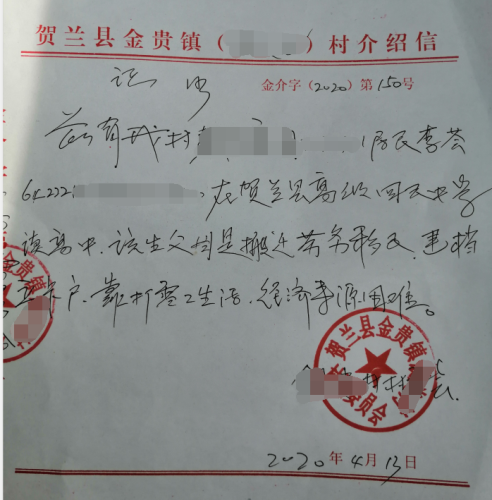 贺兰县金贵镇（ ）村介绍信
证明
金介字（2020）第150号
兹有我村 居民李荟
642221 在贺兰县高级回民中学
读高中，该生父母是搬迁劳务移民，建档
立卡户、靠打零工生活、经济来源困难。
贺兰县金贵镇
委员会
2020年4月13日